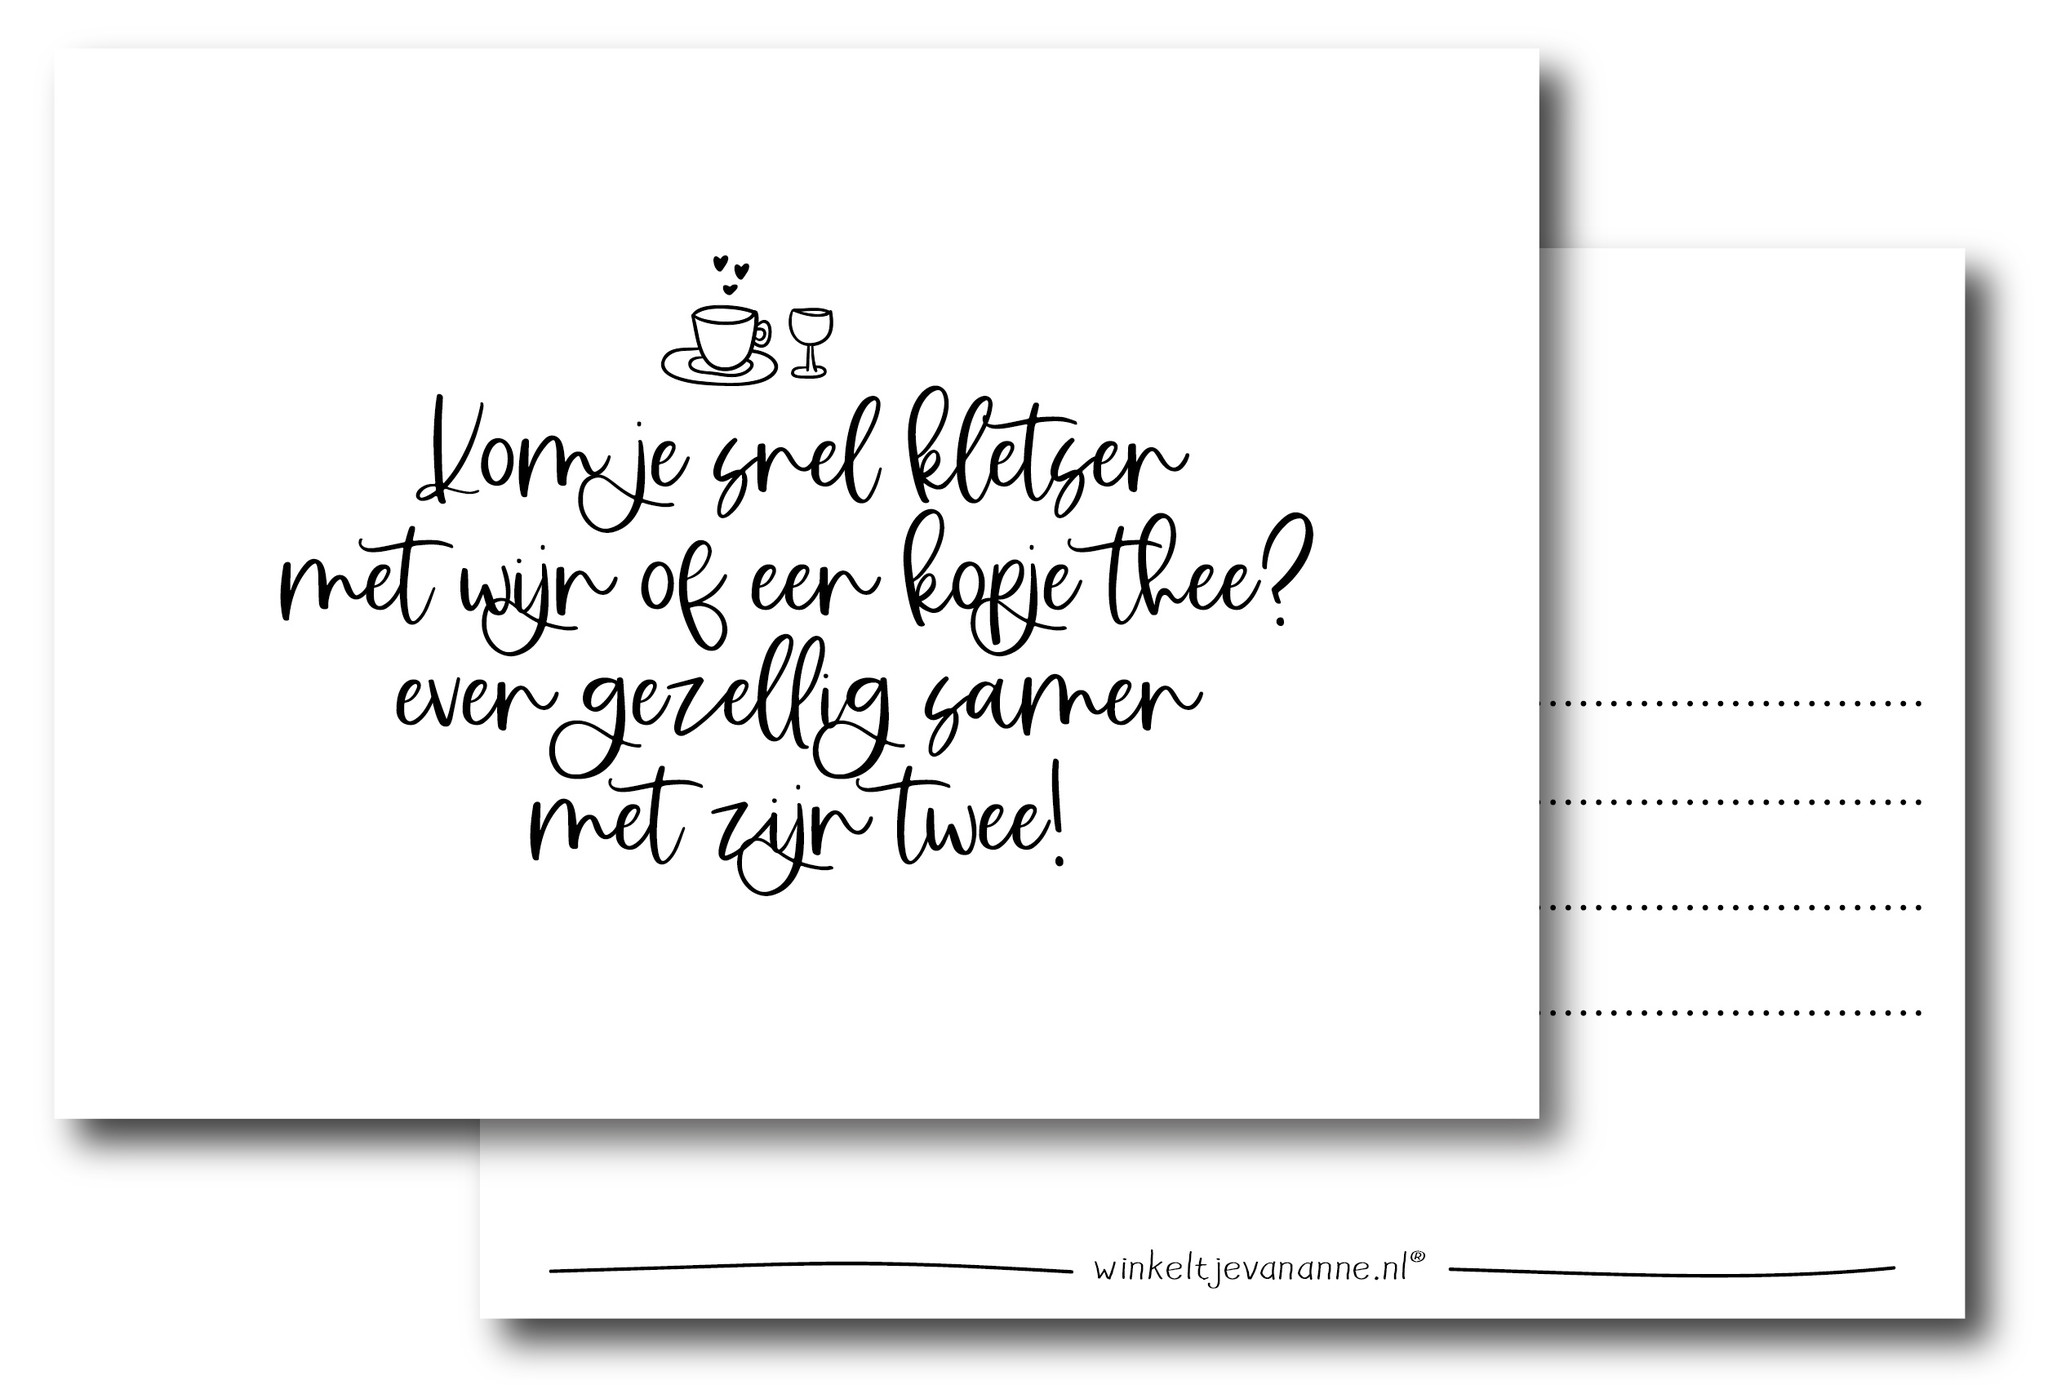 Kom je snel kletsen
met wijn of een kopje thee?
even gezellig samen
met zijn twee!
winkeltjevananne.nl®